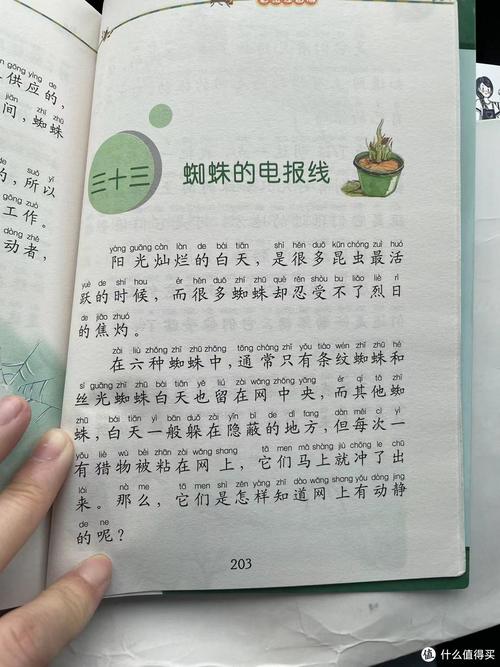 gōng yìng de
供应的，
jiān zhī zhū
间，蜘蛛
de suǒ yǐ
的，所以
工作。
dòng zhě
动者，
三十三
蜘蛛的电报线
yáng guāng càn làn de bái tiān shì hěn duō kūn chóng zuì huó
阳光灿烂的白天，是很多昆虫最活
yuè de shí hou ér hěn duō zhī zhū què rěn shòu bu liǎo liè rì
跃的时候，而很多蜘蛛却忍受不了烈日
de jiāo zhuó
的焦灼。
zài liù zhǒng zhī zhū zhōng tōng cháng zhǐ yǒu tiáo wén zhī zhū hé
在六种蜘蛛中，通常只有条纹蜘蛛和
sī guāng zhī zhū bái tiān yě liú zài wǎng zhōng yāng ér qí tā zhī
丝光蜘蛛白天也留在网中央，而其他蜘
zhū bái tiān yì bān duǒ zài yǐn bì de dì fang dàn měi cì yì
蛛，白天一般躲在隐蔽的地方，但每次一
yǒu liè wù bèi zhān zài wǎng shàng tā men mǎ shàng jiù chōng le chū
有猎物被粘在网上，它们马上就冲了出
lái nà me tā men shì zěn yàng zhī dào wǎng shang yǒu dòng jìng
来。那么，它们是怎样知道网上有动静
de ne
的呢？
203
值 什么值得买